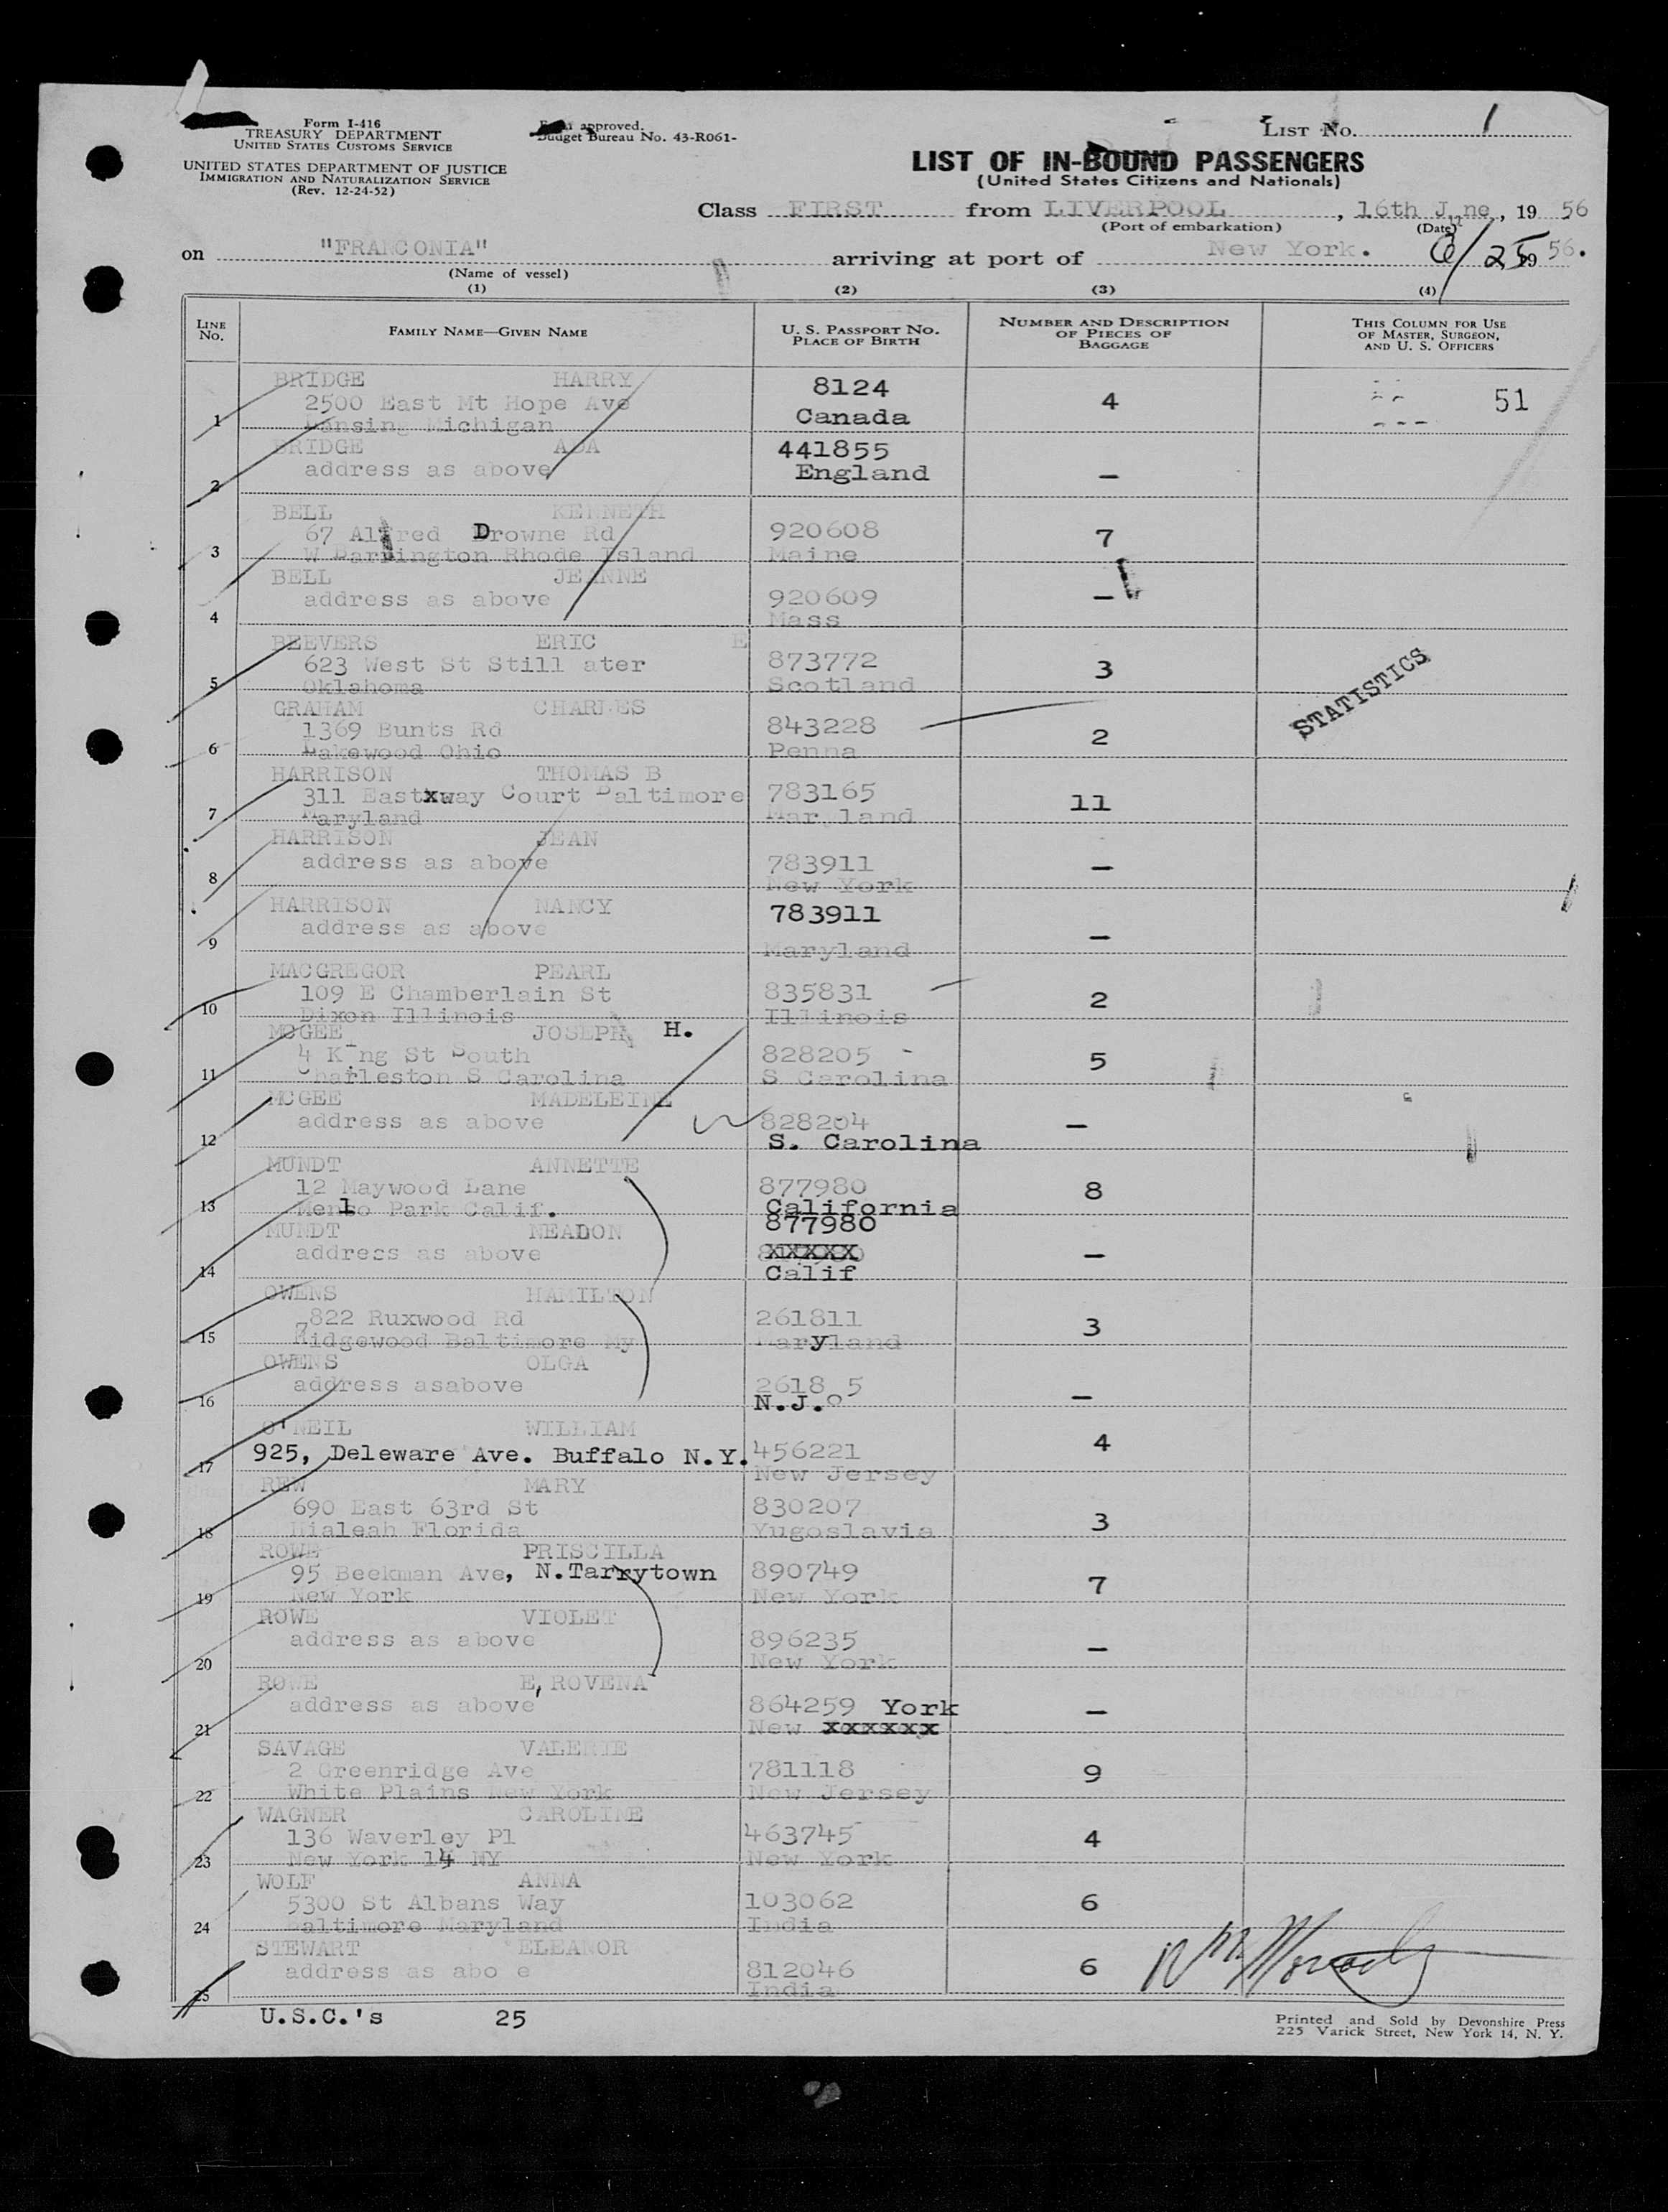 Form I-416
TREASURY DEPARTMENT
UNITED STATES CUSTOMS SERVICE
UNITED STATES DEPARTMENT OF JUSTICE
IMMIGRATION AND NATURALIZATION SERVICE
(Rev. 12-24-52)
approved.
Budget Bureau No. 43-R061-
LIST No. 1
LIST OF IN-BOUND PASSENGERS
(United States Citizens and Nationals)
Class FIRST from LIVERPOOL, 16th June, 1956
(Port of embarkation) (Date)
on "FRANCONIA" arriving at port of New York. 6/25 1956.
(Name of vessel)
(1) (2) (3) (4)
LINE No. FAMILY NAME—GIVEN NAME U. S. PASSPORT No. PLACE OF BIRTH NUMBER AND DESCRIPTION OF PIECES OF BAGGAGE THIS COLUMN FOR USE OF MASTER, SURGEON, AND U. S. OFFICERS
BRIDGE HARRY 8124
2500 East Mt Hope Ave 4 51
1 Lansing Michigan Canada
BRIDGE ADA 441855
address as above England —
2
BELL KENNETH
67 Alfred Drowne Rd 920608 7
3 W Barrington Rhode Island Maine
BELL JEANNE
address as above 920609 —
4 Mass
BEEVERS ERIC E
623 West St Still ater 873772 3
5 Oklahoma Scotland
GRAHAM CHARLES
1369 Bunts Rd 843228 2
6 Lakewood Ohio Penna
HARRISON THOMAS B
311 Eastxway Court Baltimore 783165 11
7 Maryland Maryland
HARRISON JEAN
address as above 783911 —
8 New York
HARRISON NANCY 783911
address as above —
9 Maryland
MACGREGOR PEARL
109 E Chamberlain St 835831 2
10 Dixon Illinois Illinois
MCGEE JOSEPH H.
4 King St South 828205 5
11 Charleston S Carolina S Carolina
MCGEE MADELEINE
address as above 828204 —
12 S. Carolina
MUNDT ANNETTE
12 Maywood Lane 877980 8
13 Menlo Park Calif. California
MUNDT NEALON 877980
address as above xxxxx —
14 Calif
OWENS HAMILTON
7822 Ruxwood Rd 261811 3
15 Ridgewood Baltimore My Maryland
OWENS OLGA
address asabove 2618 5 —
16 N.J.
O'NEIL WILLIAM
925, Deleware Ave. Buffalo N.Y. 456221 4
17 New Jersey
REW MARY
690 East 63rd St 830207 3
18 Hialeah Florida Yugoslavia
ROWE PRISCILLA
95 Beekman Ave, N.Tarrytown 890749 7
19 New York New York
ROWE VIOLET
address as above 896235 —
20 New York
ROWE E, ROVENA
address as above 864259 York —
21 New xxxxxx
SAVAGE VALERIE
2 Greenridge Ave 781118 9
22 White Plains New York New Jersey
WAGNER CAROLINE
136 Waverley Pl 463745 4
23 New York 14 NY New York
WOLF ANNA
5300 St Albans Way 103062 6
24 Baltimore Maryland India
STEWART ELEANOR
address as abo e 812046 6
25 India
STATISTICS
U.S.C.'s 25
Printed and Sold by Devonshire Press
225 Varick Street, New York 14, N. Y.